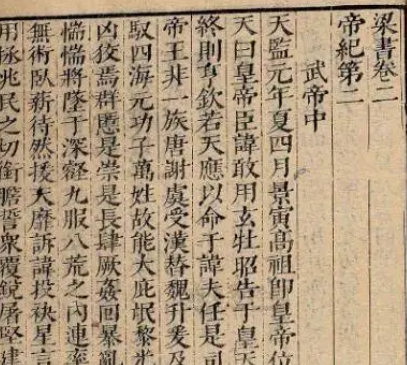 梁書卷二
帝紀第二
武帝中
天監元年夏四月景寅高祖即皇帝位
天曰皇帝臣諱敢用玄牡昭告于皇天
終則亨欽若天應以命于諱夫任是司
帝王非一族唐謝虞受漢替魏升爰及
馭四海元功子萬姓故能大庇氓黎光
凶狡焉群慝是崇是長肆厥姦回暴亂
惴惴將墜于深壑九服八荒之內連率
無術臥薪待然援天靡訴諱投袂星言
用拯兆民之切銜膽誓衆覆銳屠堅建